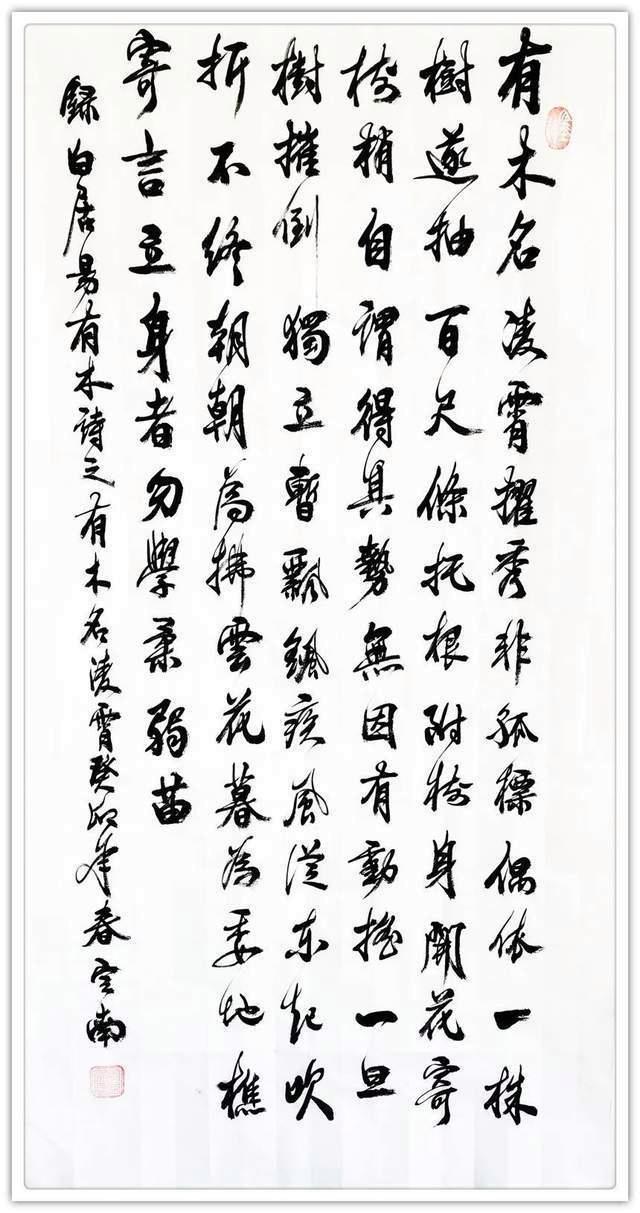 有木名凌霄擢秀非孤標偶依一株
樹遂抽百尺條托根附树身開花寄
树梢自謂得其勢無因有動搖一旦
樹摧倒獨立暫飄颻疾風從東起吹
折不終朝朝為拂雲花暮為委地樵
寄言立身者勿學柔弱苗
錄白居易有木詩之有木名凌霄癸卯年春